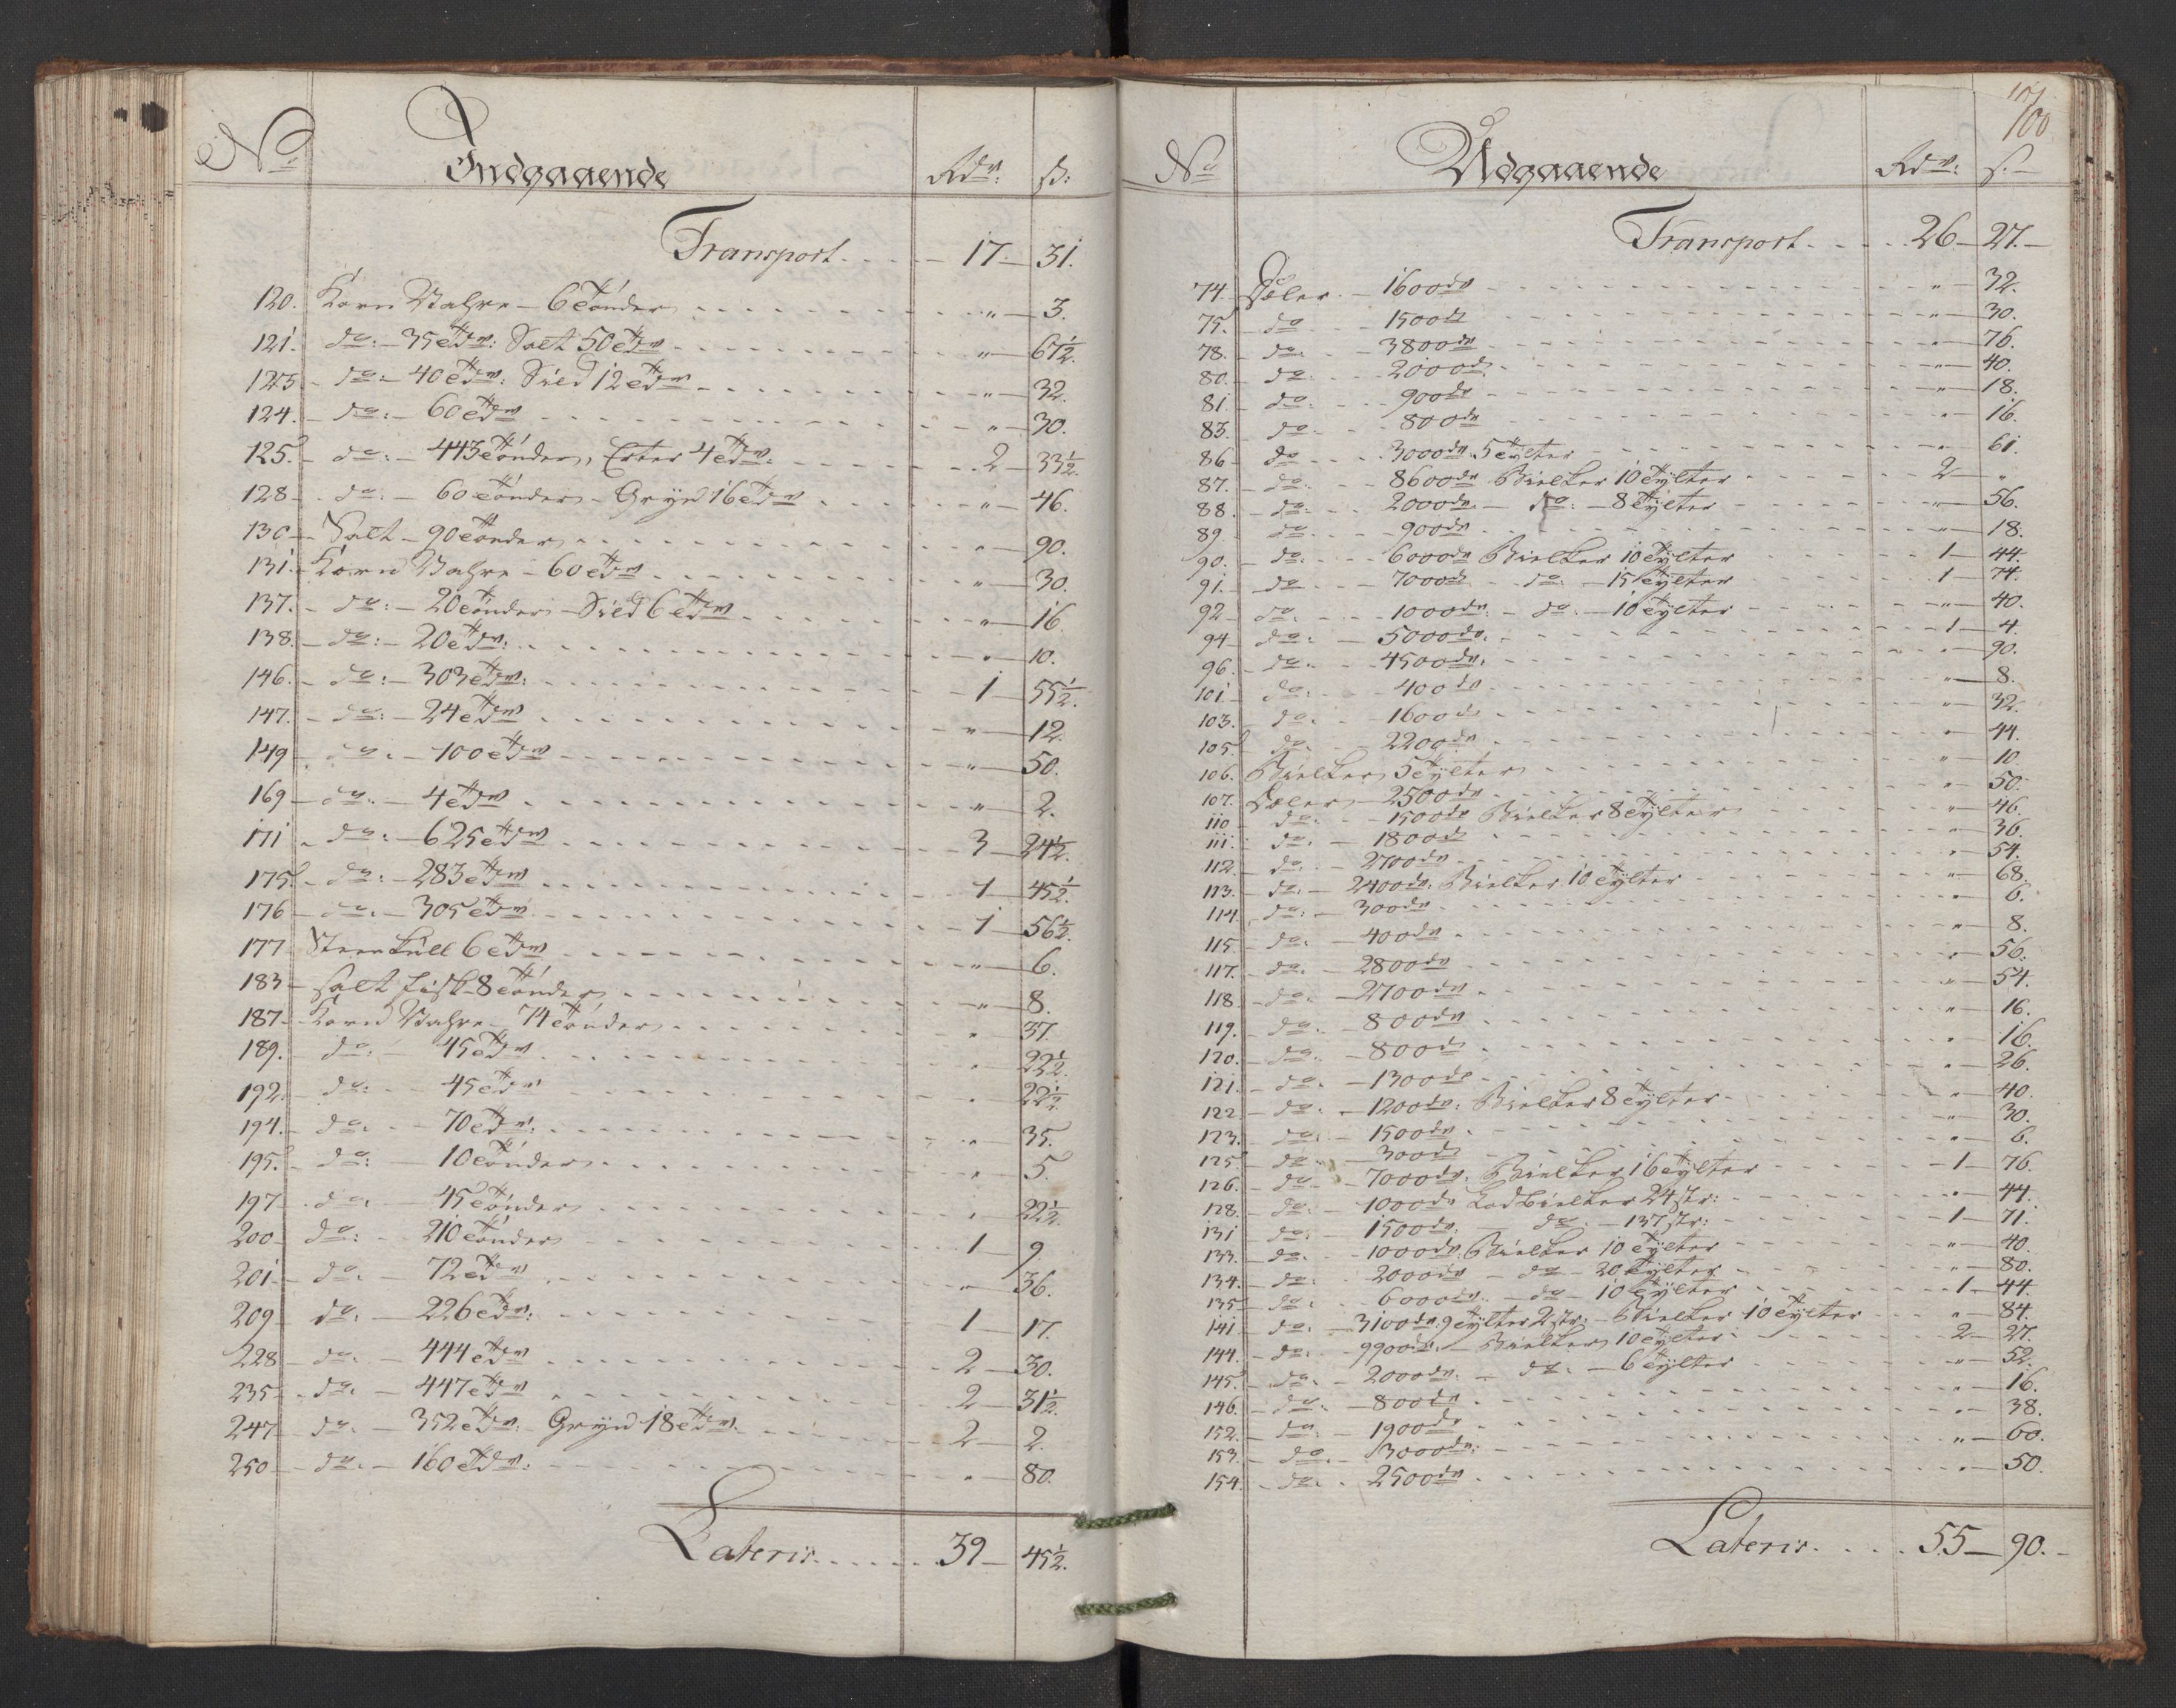 No
Indgaaende
Rdr:
s:
Transport 17 31.
120. Korn Vahre 6 Tønder " 3.
121. do: 35 Tdr: Salt 50 Tdr " 67½.
123 do: 40 Tdr: Sild 12 Tdr " 32.
124. do: 60 Tdr " 30.
125. do: 443 Tønder, Erter 4 Tdr: 2 33½.
128 do: 60 Tønder Gryn 16 Tdr " 46.
130 Salt 90 Tønder " 90.
131. Korn Vahre 60 Tdr " 30.
137. do: 20 Tønder Sild 6 Tdr " 16
138. do: 20 Tdr: " 10.
146. do: 303 Tdr: 1 55½.
147. do: 24 Tdr " 12.
149 do. 100 Tdr " 50.
169 do. 4 Tdr " 2.
171 do: 625 Tdr 3 24½.
175. do: 283 Tdr 1 45½.
176 do. 305 Tdr 1 56½.
177 Steenkull 6 Tdr " 6.
183 salt fisk 8 Tønder " 8.
187 Korn Vahre 74 Tønder " 37.
189. do: 45 Tdr " 22½.
192. do: 45 Tdr " 22½
194. do. 70 Tdr: " 35.
195. do: 10 Tønder " 5.
197 do. 45 Tønder " 22½.
200 do: 210 Tønder 1 9.
201 do. 72 Tdr " 36.
209 do. 226 Tdr: 1 17.
228 do. 444 Tdr 2 30.
235 do. 447 Tdr 2 31½.
247 do. 352 Tdr. Gryn 18 Tdr. 2 2.
250 do. 160 Tdr: " 80.
Lateris 39 45½.
101
100
No
Udgaaende
Rdr:
s.
Transport 26 27.
74. 1600 dr " 32.
75. do 1500 dr " 30.
78. do. 3800 dr " 76.
80. do: 2000 dr " 40.
81. do: 900 dr " 18.
83. do: 800 dr " 16.
86 do 3000 dr 5 Tylter " 61.
87. do: 8600 dr Bielker 10 Tylter 2 "
88. do: 2000 dr. do: 8 Tylter " 56.
89 do: 900 dr " 18.
90. do: 6000 dr Bielker 10 Tylter 1 44.
91. do 7000 dr do: 15 Tylter 1 74.
92 do. 1000 dr. do. 10 Tylter " 40.
94 do: 5000 dr. 1 4.
96 do. 4500 dr. " 90.
101. do: 400 dr " 8.
103. do. 1600 dr " 32.
105 do. 2200 dr " 44.
106. Bielker 5 Tylter " 10.
107. 2500 dr " 50.
110 do. 1500 dr Bielker 8 Tylter " 46.
111. do. 1800 dr " 36.
112. do. 2700 dr " 54.
113. do: 2400 dr. Bielker 10 Tylter " 68.
114. do: 300 dr " 6.
115. do: 400 dr " 8.
117. do. 2800 dr " 56.
118 do. 2700 dr " 54.
119. do. 800 dr " 16.
120. do. 800 dr " 16.
121. do. 1300 dr " 26.
122 do. 1200 dr: Bielker 8 Tylter " 40.
123. do. 1500 dr " 30.
125 do. 300 dr " 6.
126. do. 7000 dr. Bielker 16 Tylter 1 76.
128. do: 1000 dr Lodbielker 24 str: " 44.
131 do: 1500 dr. do: 137 str: 1 71.
133. do. 1000 dr. Bielker 10 Tylter " 40.
134. do: 2000 dr do 20 Tylter " 80.
135 do: 6000 dr. do 10 Tylter 1 44.
141. do: 3100 dr. 9 Tylter 2 str: Bielker 10 Tylter " 84.
144. do: 9900 dr. Bielker 10 Tylter 2 27.
145. do. 2000 dr. do. 6 Tylter " 52.
146. do: 800 dr " 16.
152. do: 1900 dr " 38.
153. do. 3000 dr: " 60.
154. do. 2500 dr " 50.
Lateris 55 90.